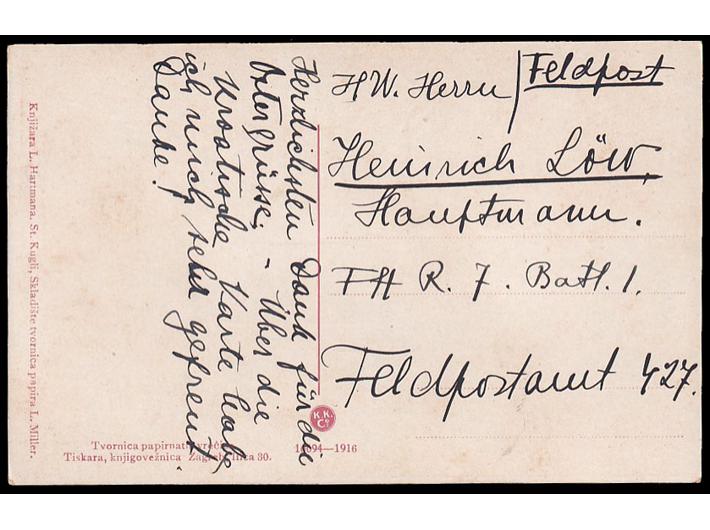 Herzlichsten Dank für die
Ostergrüsse, - Über die
kroatische Karte habe
ich mich sehr gefreut.
Danke!
HW. Herrn
Feldpost
Heinrich Löw,
Hauptmann.
R. 7. Batl. 1.
Feldpostamt 427.
Knjižara L. Hartmana. St. Kugli, Skladište tvornica papira L. Miller.
Tvornica papirnatih vrećica
Tiskara, knjigovežnica Zagreb, Ilica 30.
K.K.
Co
—1916